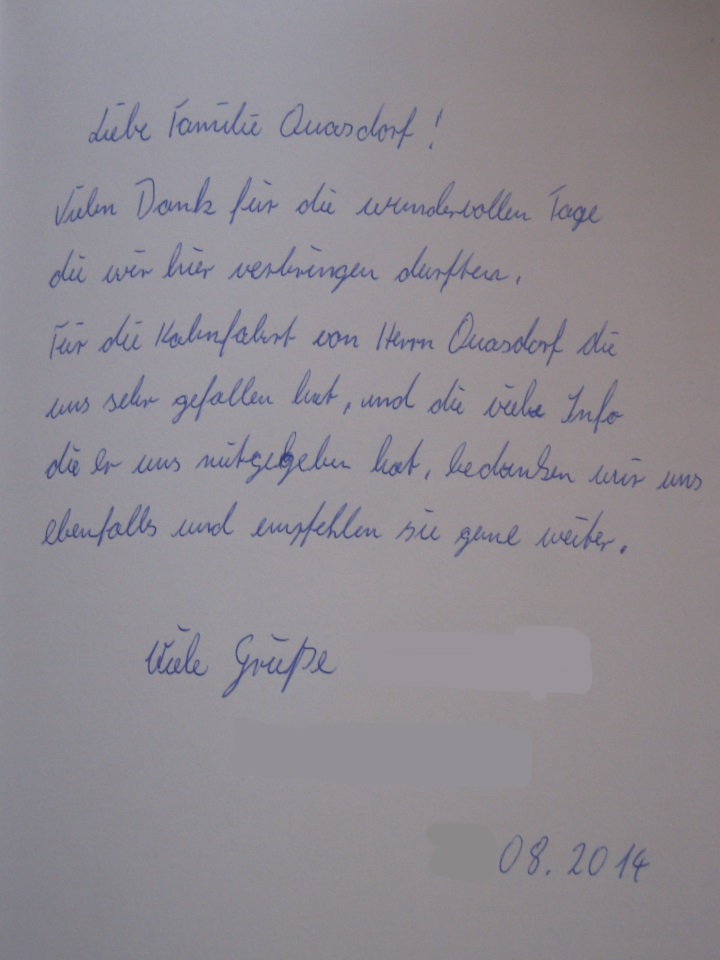 Liebe Familie Quasdorf!
Vielen Dank für die wundervollen Tage
die wir hier verbringen durften.
Für die Kahnfahrt von Herrn Quasdorf die
uns sehr gefallen hat, und die viele Info
die er uns mitgegeben hat, bedanken wir uns
ebenfalls und empfehlen sie gerne weiter.
Viele Grüße
08.2014